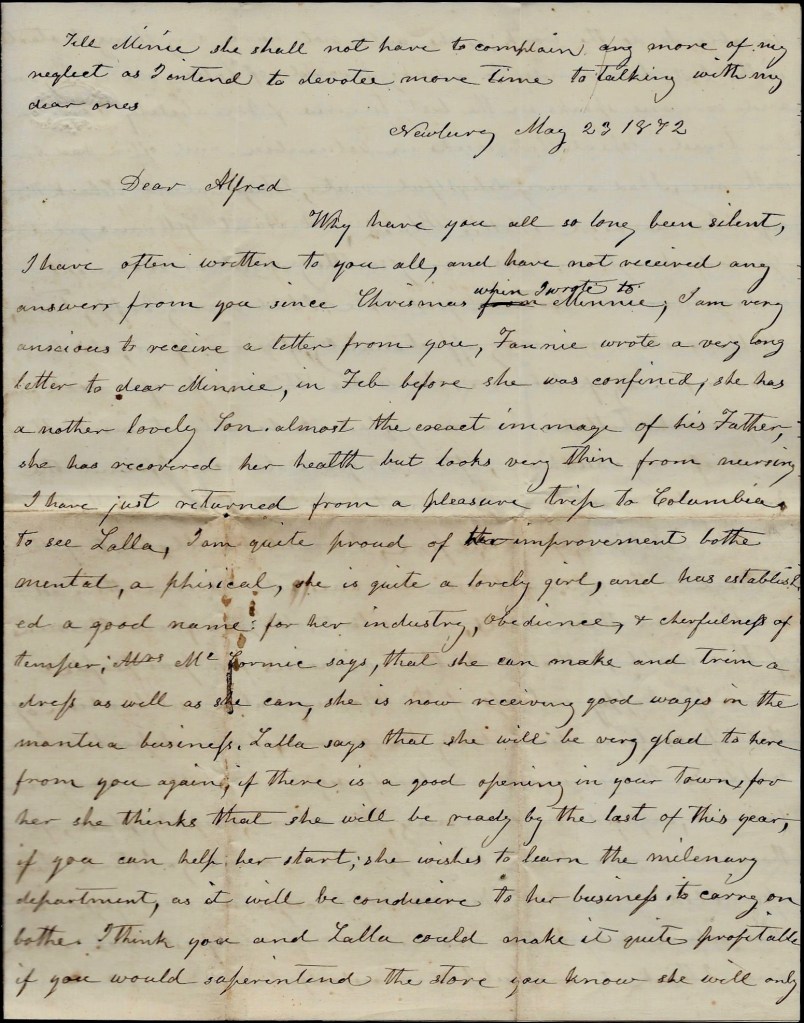 Tell Minie she shall not have to complain any more of my
neglect as I intend to devotee more time to talking with my
dear ones
Newbury May 23 1872
Dear Alfred
Why have you all so long been silent,
I have often written to you all, and have not received any
answerr from you since Chrismas when I wrote to
from Minnie, I am very
anscious to receive a letter from you, Fannie wrote a very long
letter to dear Minnie, in Feb before she was confined, she has
a nother lovely Son. almost the exeact immage of his Father,
she has recovered her health but looks very thin from nursing
I have just returned from a pleasure trip to Columbia
to see Lalla, I am quite proud of her improvement bothe
mental, a phisical, she is quite a lovely girl, and has establish
ed a good name for her industry, obedience, & cherfulness of
temper; Mrs Mc Cormic says, that she can make and trim a
dress as well as she can, she is now receiving good wages in the
mantua business. Lalla says that she will be very glad to here
from you again, if there is a good opening in your Town, for
her she thinks that she will be ready by the last of this year,
if you can help her start; she wishes to learn the milenary
department, as it will be conducive to her business to carry on
bothe. I think you and Lalla could make it quite profitable
if you would saperintend the store you know she will only